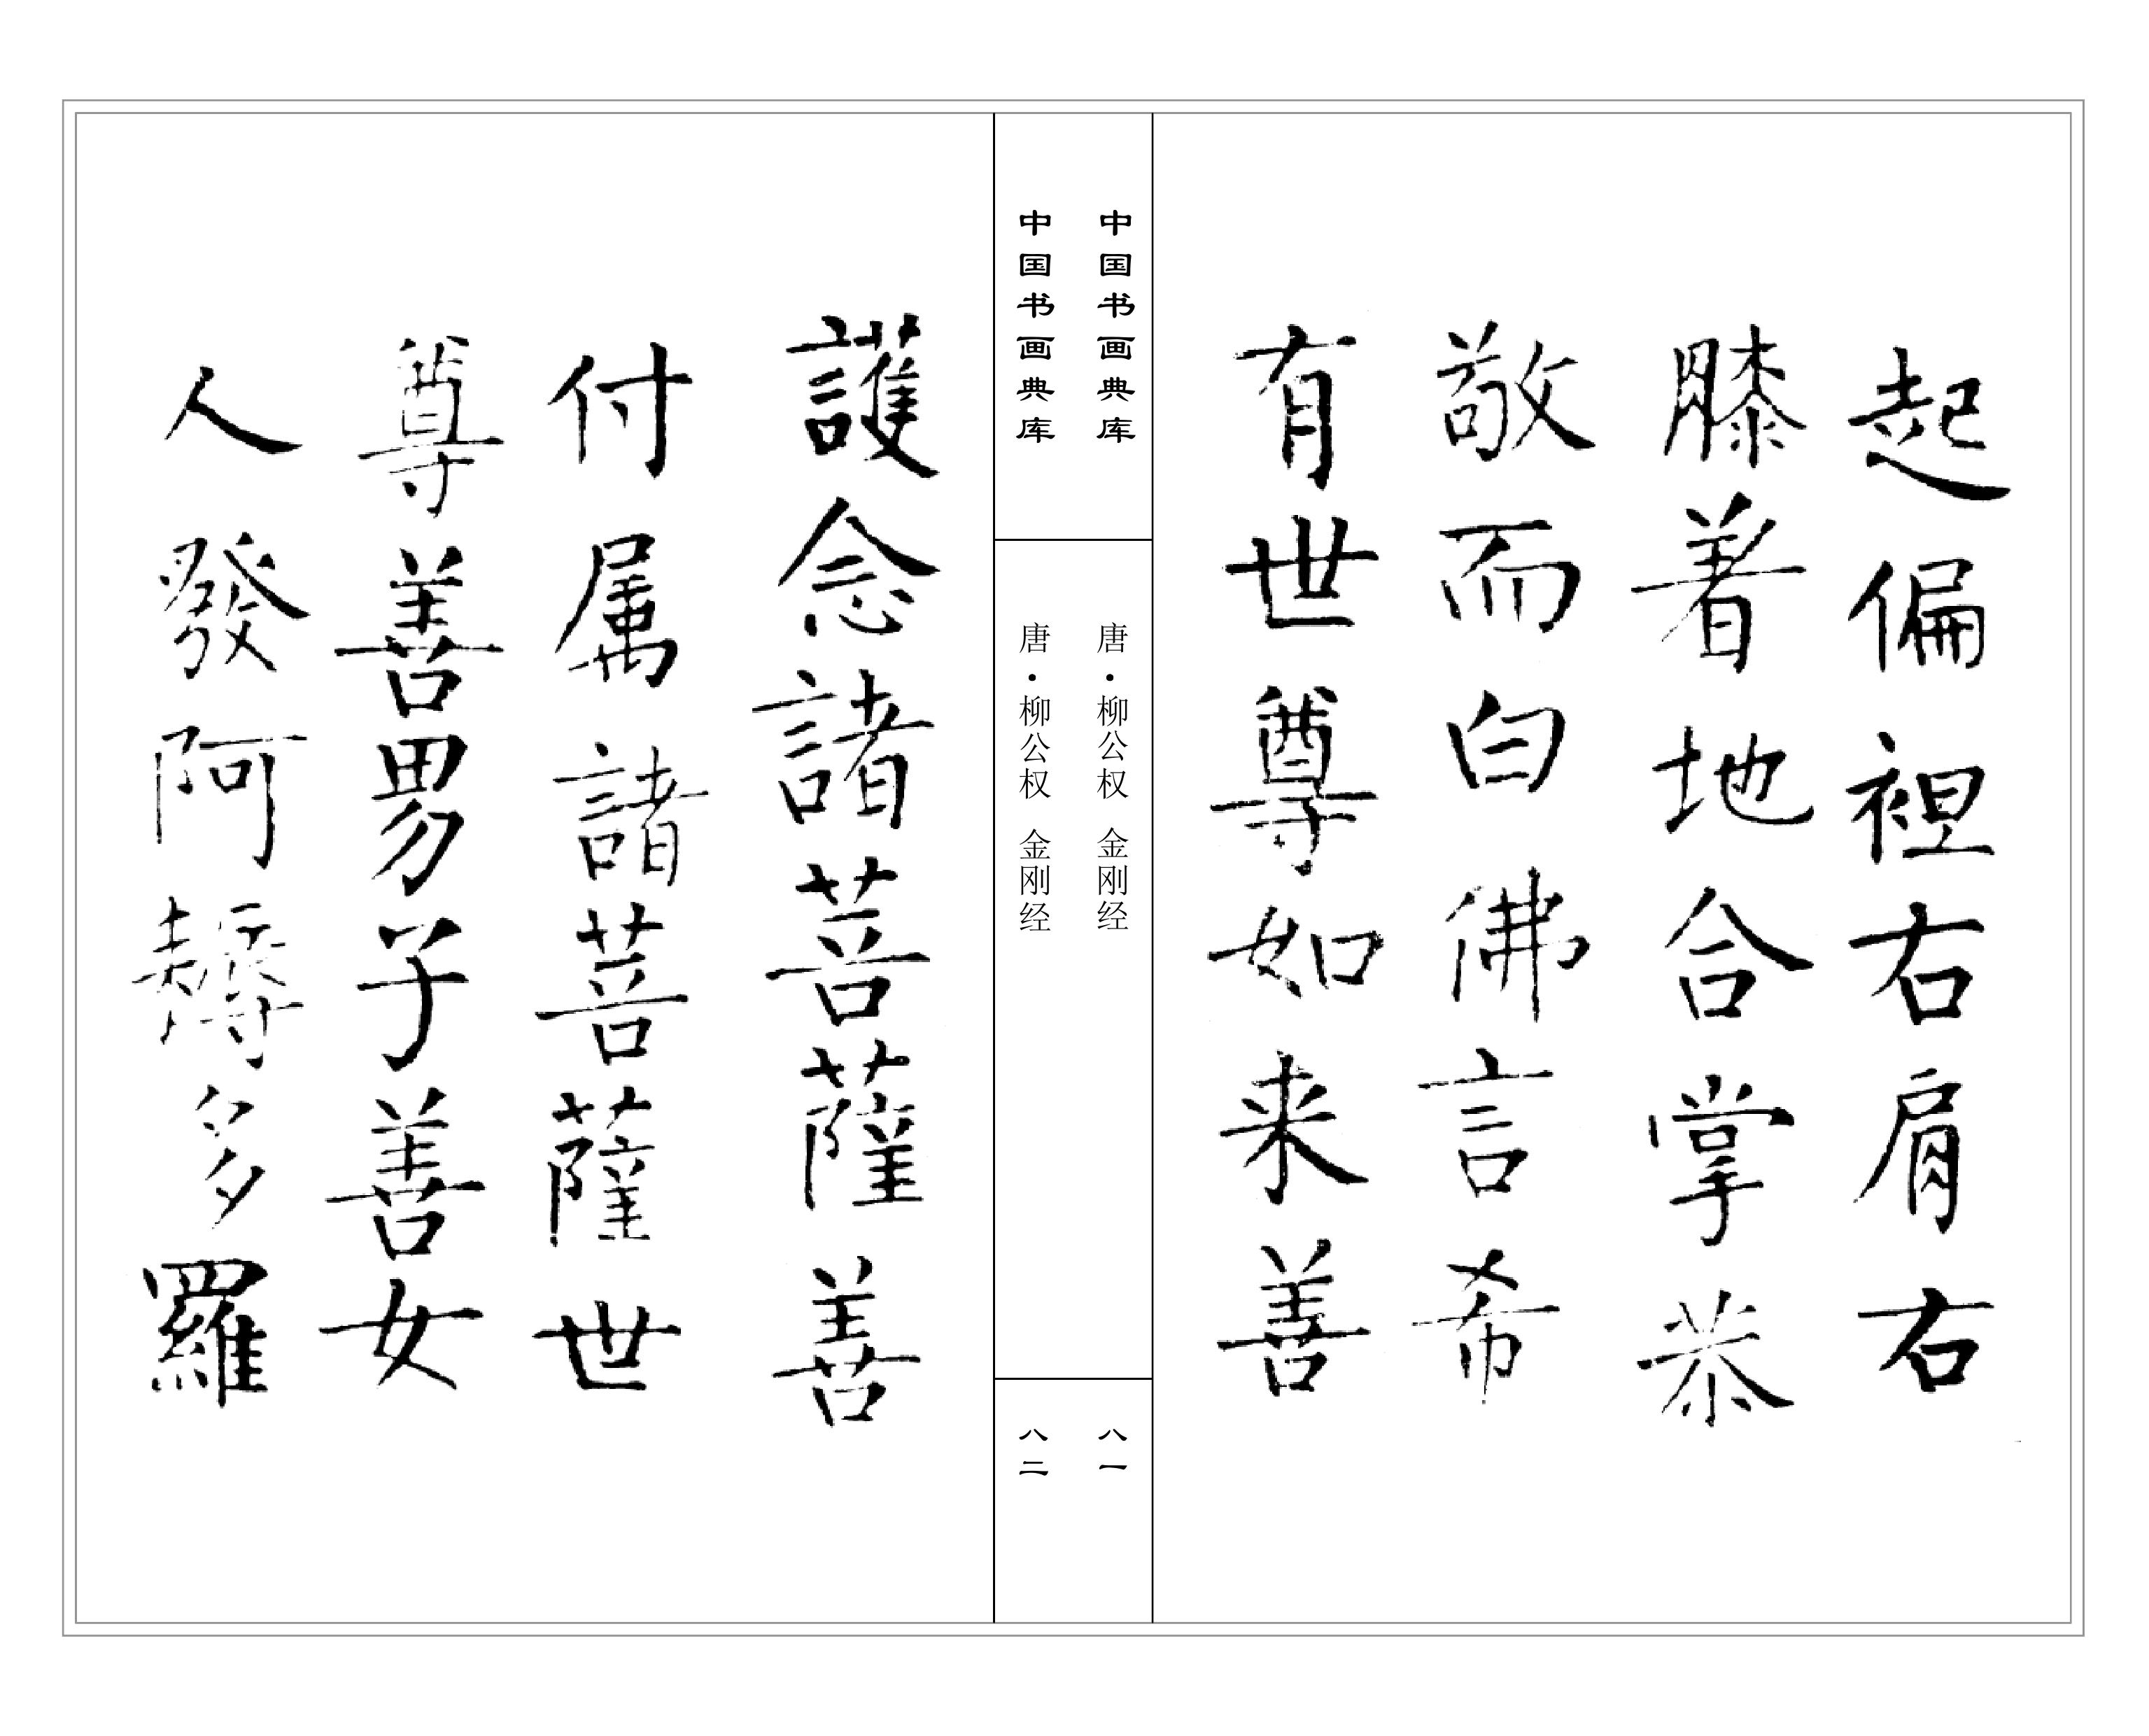 起偏袒右肩右
膝著地合掌恭
敬而白佛言希
有世尊如来善
中国书画典库
唐·柳公权 金刚经
八一
中国书画典库
唐·柳公权 金刚经
八二
護念諸菩薩善
付属諸菩薩世
尊善男子善女
人發阿耨多羅